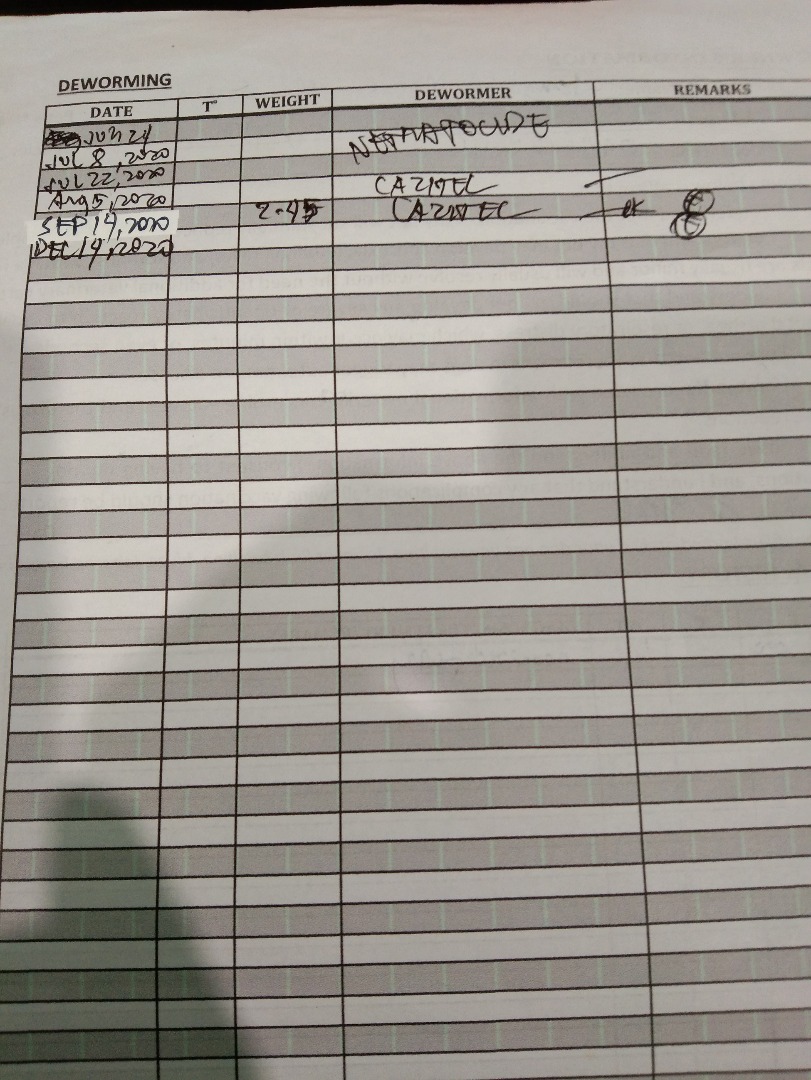 DEWORMING
DATE T° WEIGHT DEWORMER REMARKS
JUN 24 NEMATOCIDE
JUL 8, 2020
JUL 22, 2020 CAZITEL
AUG 5, 2020 2.45 CAZITEL
SEP 14, 2020
DEC 14, 2020